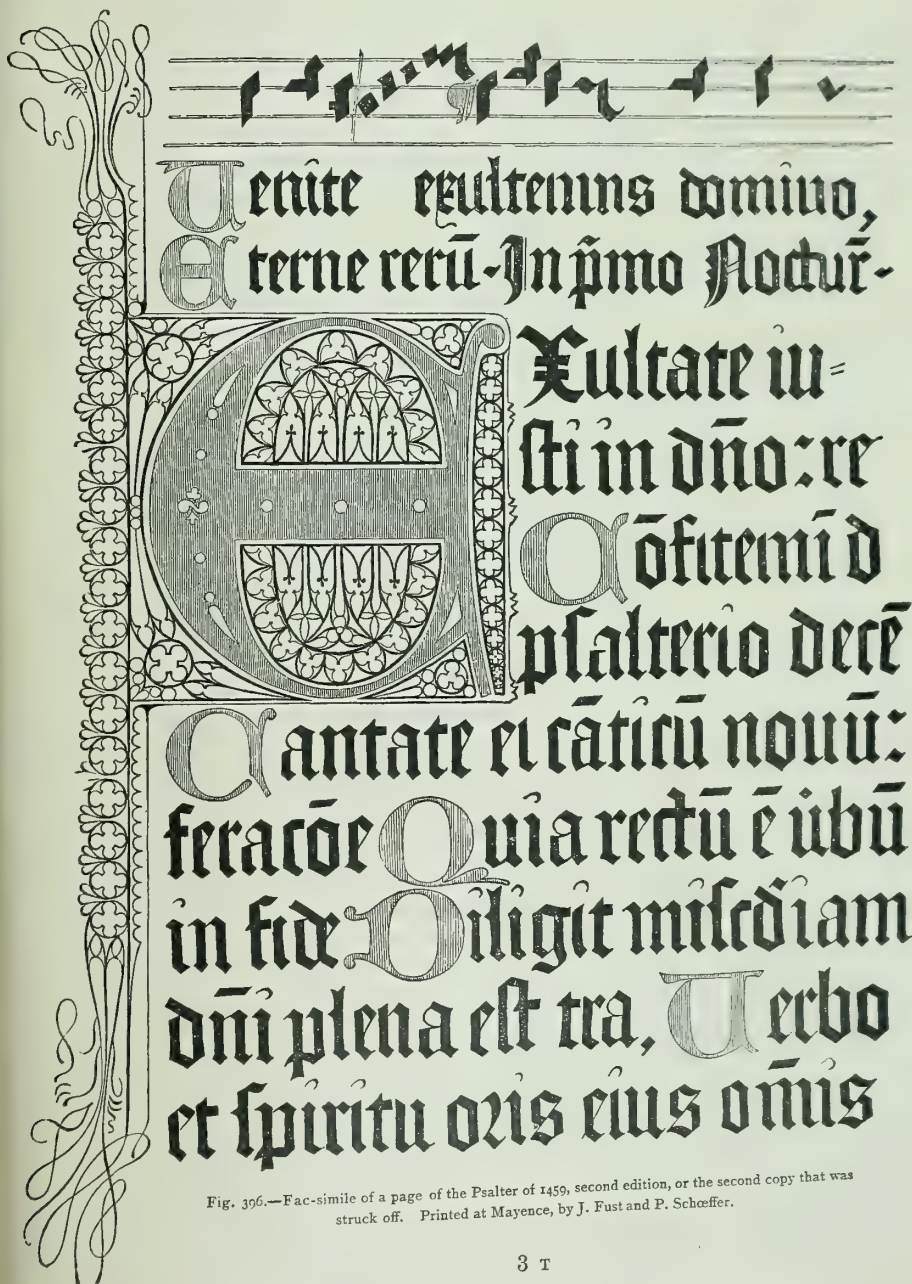 Uenite exultemus domino,
Eterne rerū-In p̄mo Noctur̄-
EXultate iu=
sti in dn̄o: re
Cōfitemī d
psalterio decē
Cantate ei cāticū nouū:
feracōe Quia rectū ē ūbū
in fide Diligit misc̄diam
dn̄i plena est tra, Uerbo
et spiritu oris eius om̄is
Fig. 396.—Fac-simile of a page of the Psalter of 1459, second edition, or the second copy that was
struck off. Printed at Mayence, by J. Fust and P. Schœffer.
3 T